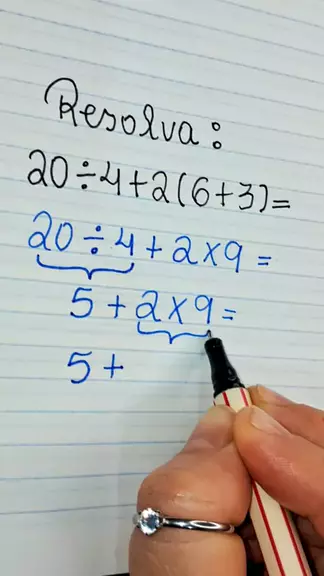 Resolva:
20÷4+2(6+3)=
20÷4+2×9=
5+2×9=
5+